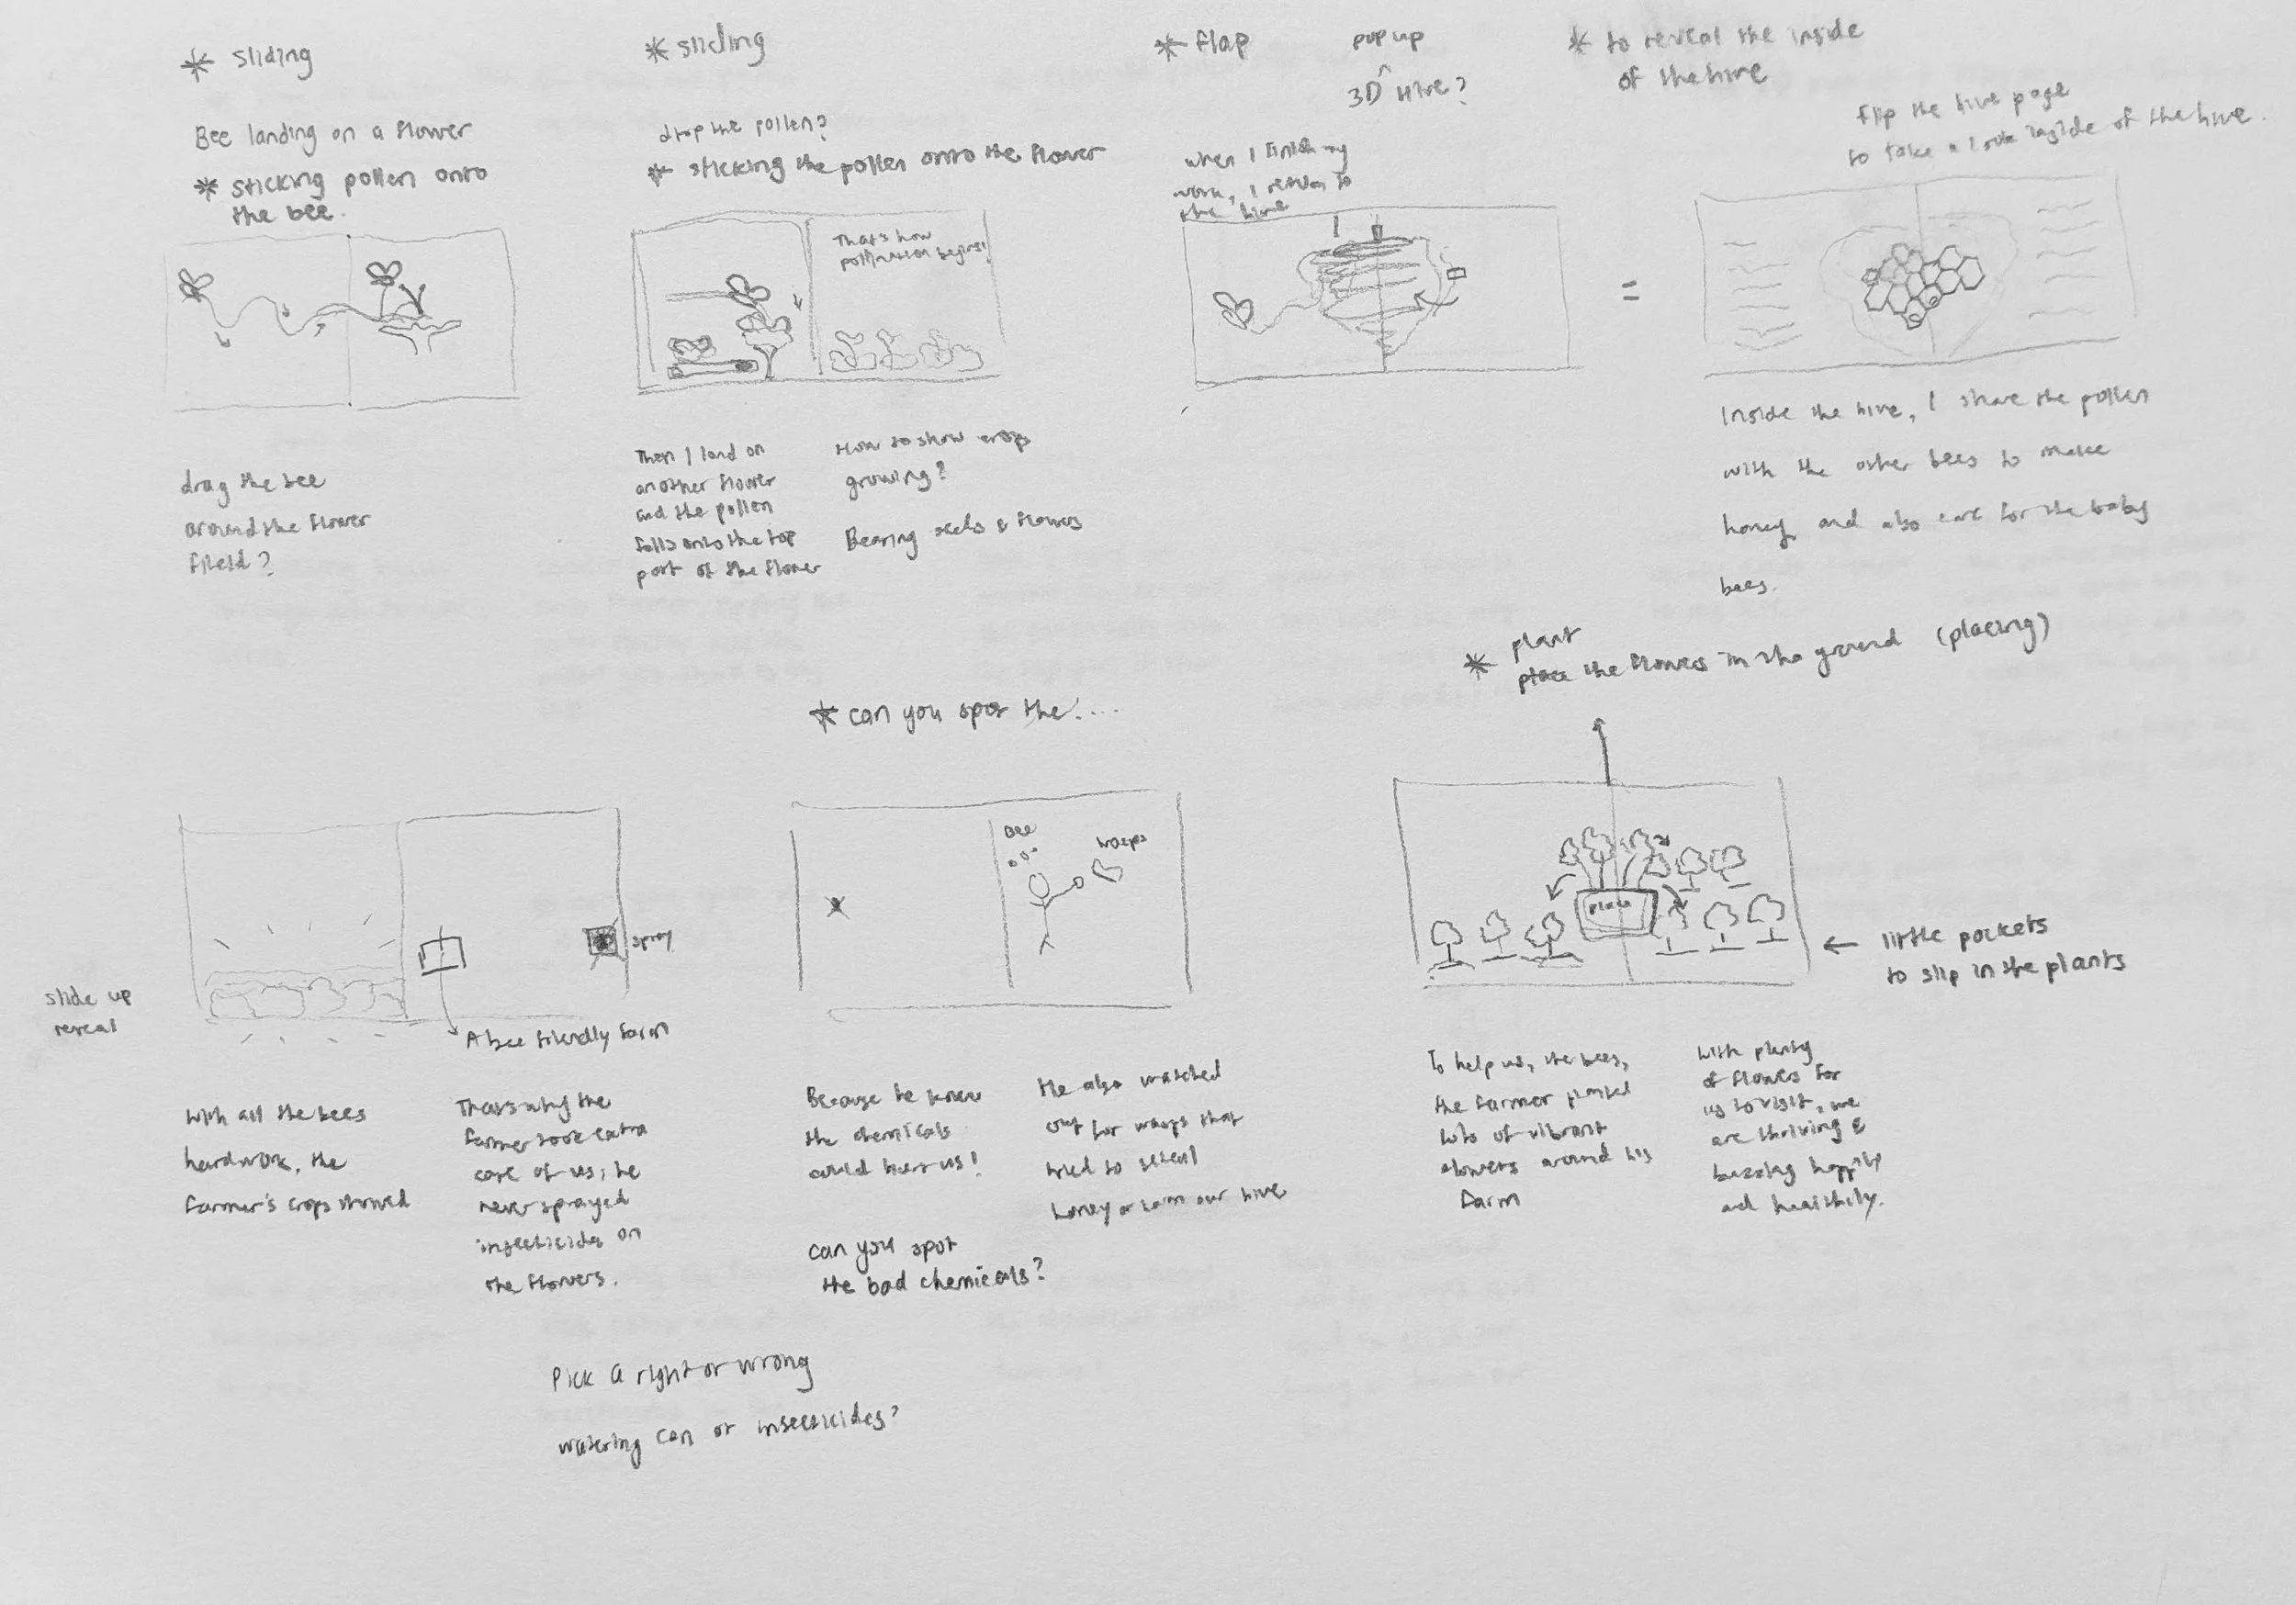 * sliding
Bee landing on a flower
* sticking pollen onto
the bee.
drag the bee
around the flower
field?
* sliding
drop the pollen?
* sticking the pollen onto the flower
That's how
pollination begins!
Then I land on
another flower
and the pollen
falls onto the top
part of the flower
How to show crops
growing?
Bearing seeds & flowers
* flap
pop up
3D ^ Hive?
when I finish my
work, I return to
the hive
=
* to reveal the inside
of the hive
flip the hive page
to take a look inside of the hive.
Inside the hive, I share the pollen
with the other bees to make
honey and also care for the baby
bees.
slide up
reveal
spray
A bee friendly farm
With all the bees
hardwork, the
farmer's crops thrived
That's why the
farmer took extra
care of us; he
never sprayed
insecticides on
the flowers.
* can you spot the....
Bee
wasps
Because he knew
the chemicals
could hurt us!
He also watched
out for wasps that
tried to steal
honey or harm our hive
can you spot
the bad chemicals?
Pick a right or wrong
watering can or insecticides?
* plant
place the flowers in the ground (placing)
place
← little pockets
to slip in the plants
To help us, the bees,
the farmer planted
lots of vibrant
flowers around his
farm
with plenty
of flowers for
us to visit, we
are thriving &
buzzing happily
and healthily.